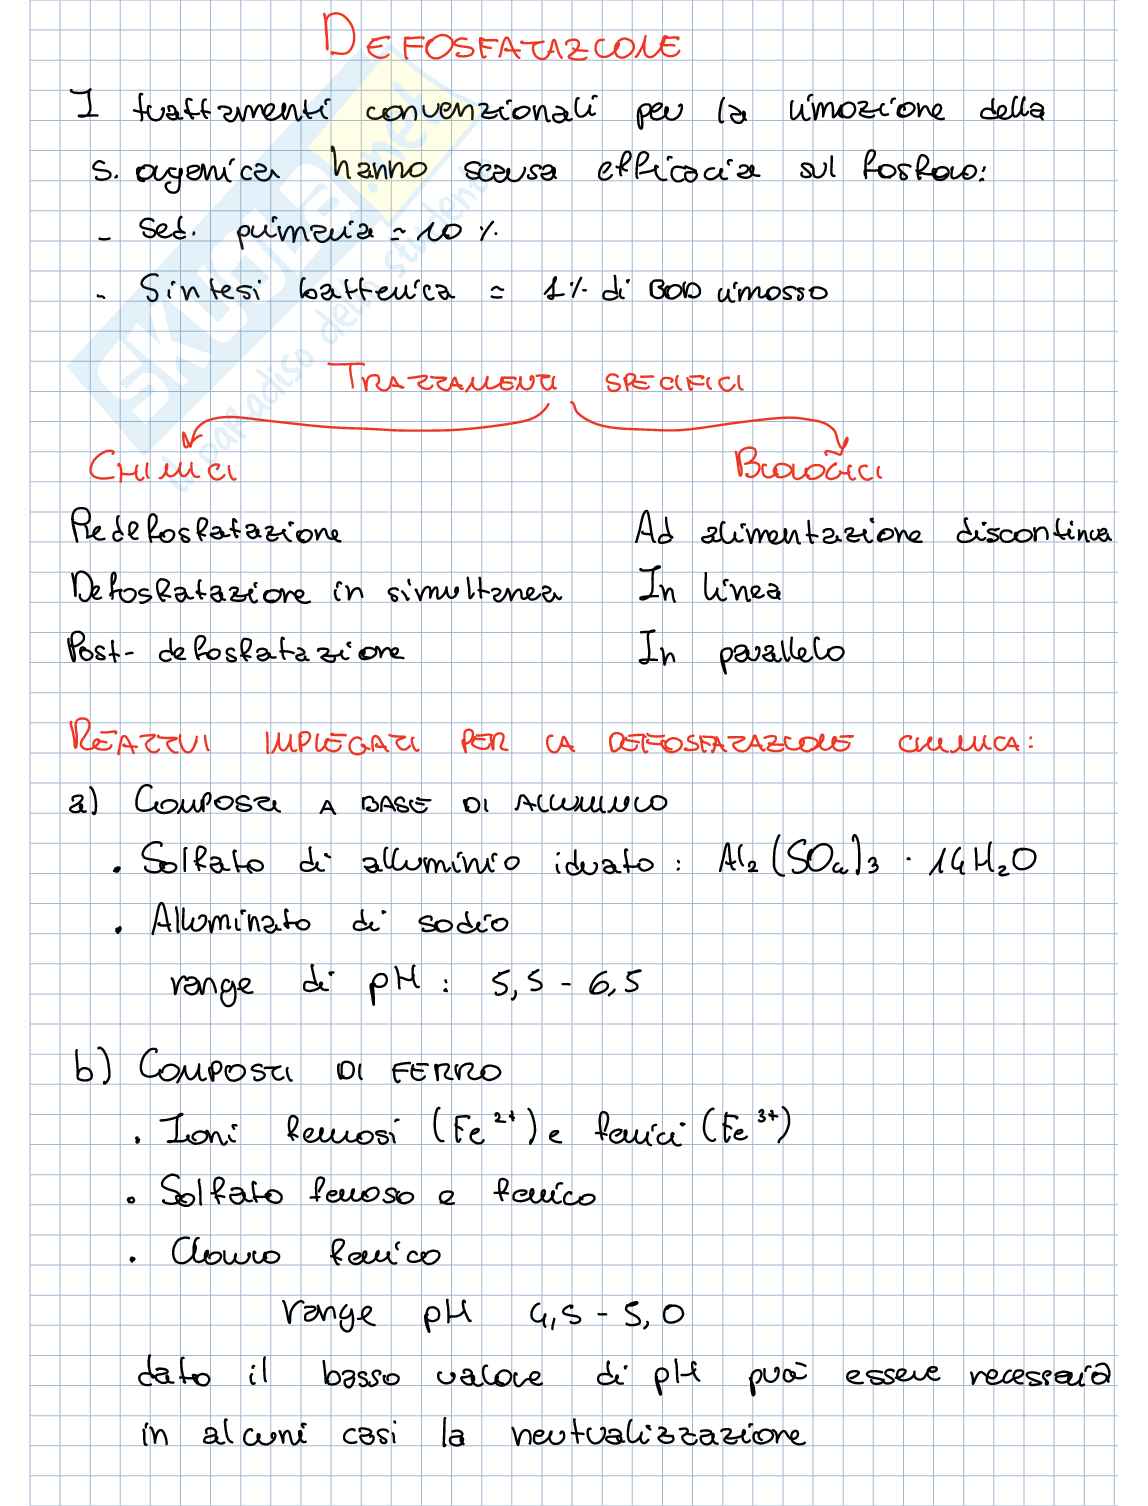 DEFOSFATAZIONE
I trattamenti convenzionali per la rimozione della
s. organica hanno scarsa efficacia sul fosforo:
- Sed. primaria ≃ 10 %
- Sintesi batterica ≃ 1% di BOD rimosso
TRATTAMENTI SPECIFICI
CHIMICI
BIOLOGICI
Predefosfatazione
Ad alimentazione discontinua
Defosfatazione in simultanea
In linea
Post-defosfatazione
In parallelo
REATTIVI IMPIEGATI PER LA DEFOSFATAZIONE CHIMICA:
a) COMPOSTI A BASE DI ALLUMINIO
• Solfato di alluminio idrato : Al₂(SO₄)₃ · 14H₂O
• Alluminato di sodio
range di pH : 5,5 - 6,5
b) COMPOSTI DI FERRO
• Ioni ferrosi (Fe²⁺) e ferrici (Fe³⁺)
• Solfato ferroso e ferrico
• Cloruro ferrico
range pH 4,5 - 5,0
dato il basso valore di pH può essere necessaria
in alcuni casi la neutralizzazione
SKUOLA.net
il paradiso dello studente